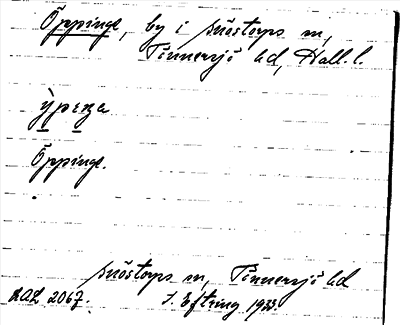 Öppinge, by i Snöstorps sn,
Tönnersjö hd, Hall. l.
Öppinge.
Snöstorps sn, Tönnersjö hd
DAL 2067. J. Eftring 1933